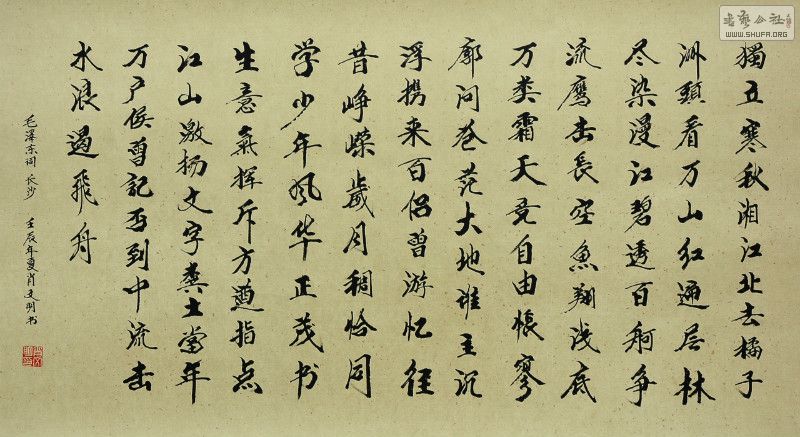 獨立寒秋湘江北去橘子
洲頭看万山红遍层林
尽染漫江碧透百舸争
流鹰击長空魚翔浅底
万类霜天竞自由怅寥
廓问苍茫大地谁主沉
浮携来百侣曾游忆往
昔峥嵘歲月稠恰同
学少年风华正茂书
生意氣挥斥方遒指点
江山激扬文字粪土當年
万户侯曾記否到中流击
水浪遏飛舟
毛澤东词 长沙 壬辰年夏肖文明书
書藝公社
WWW.SHUFA.ORG